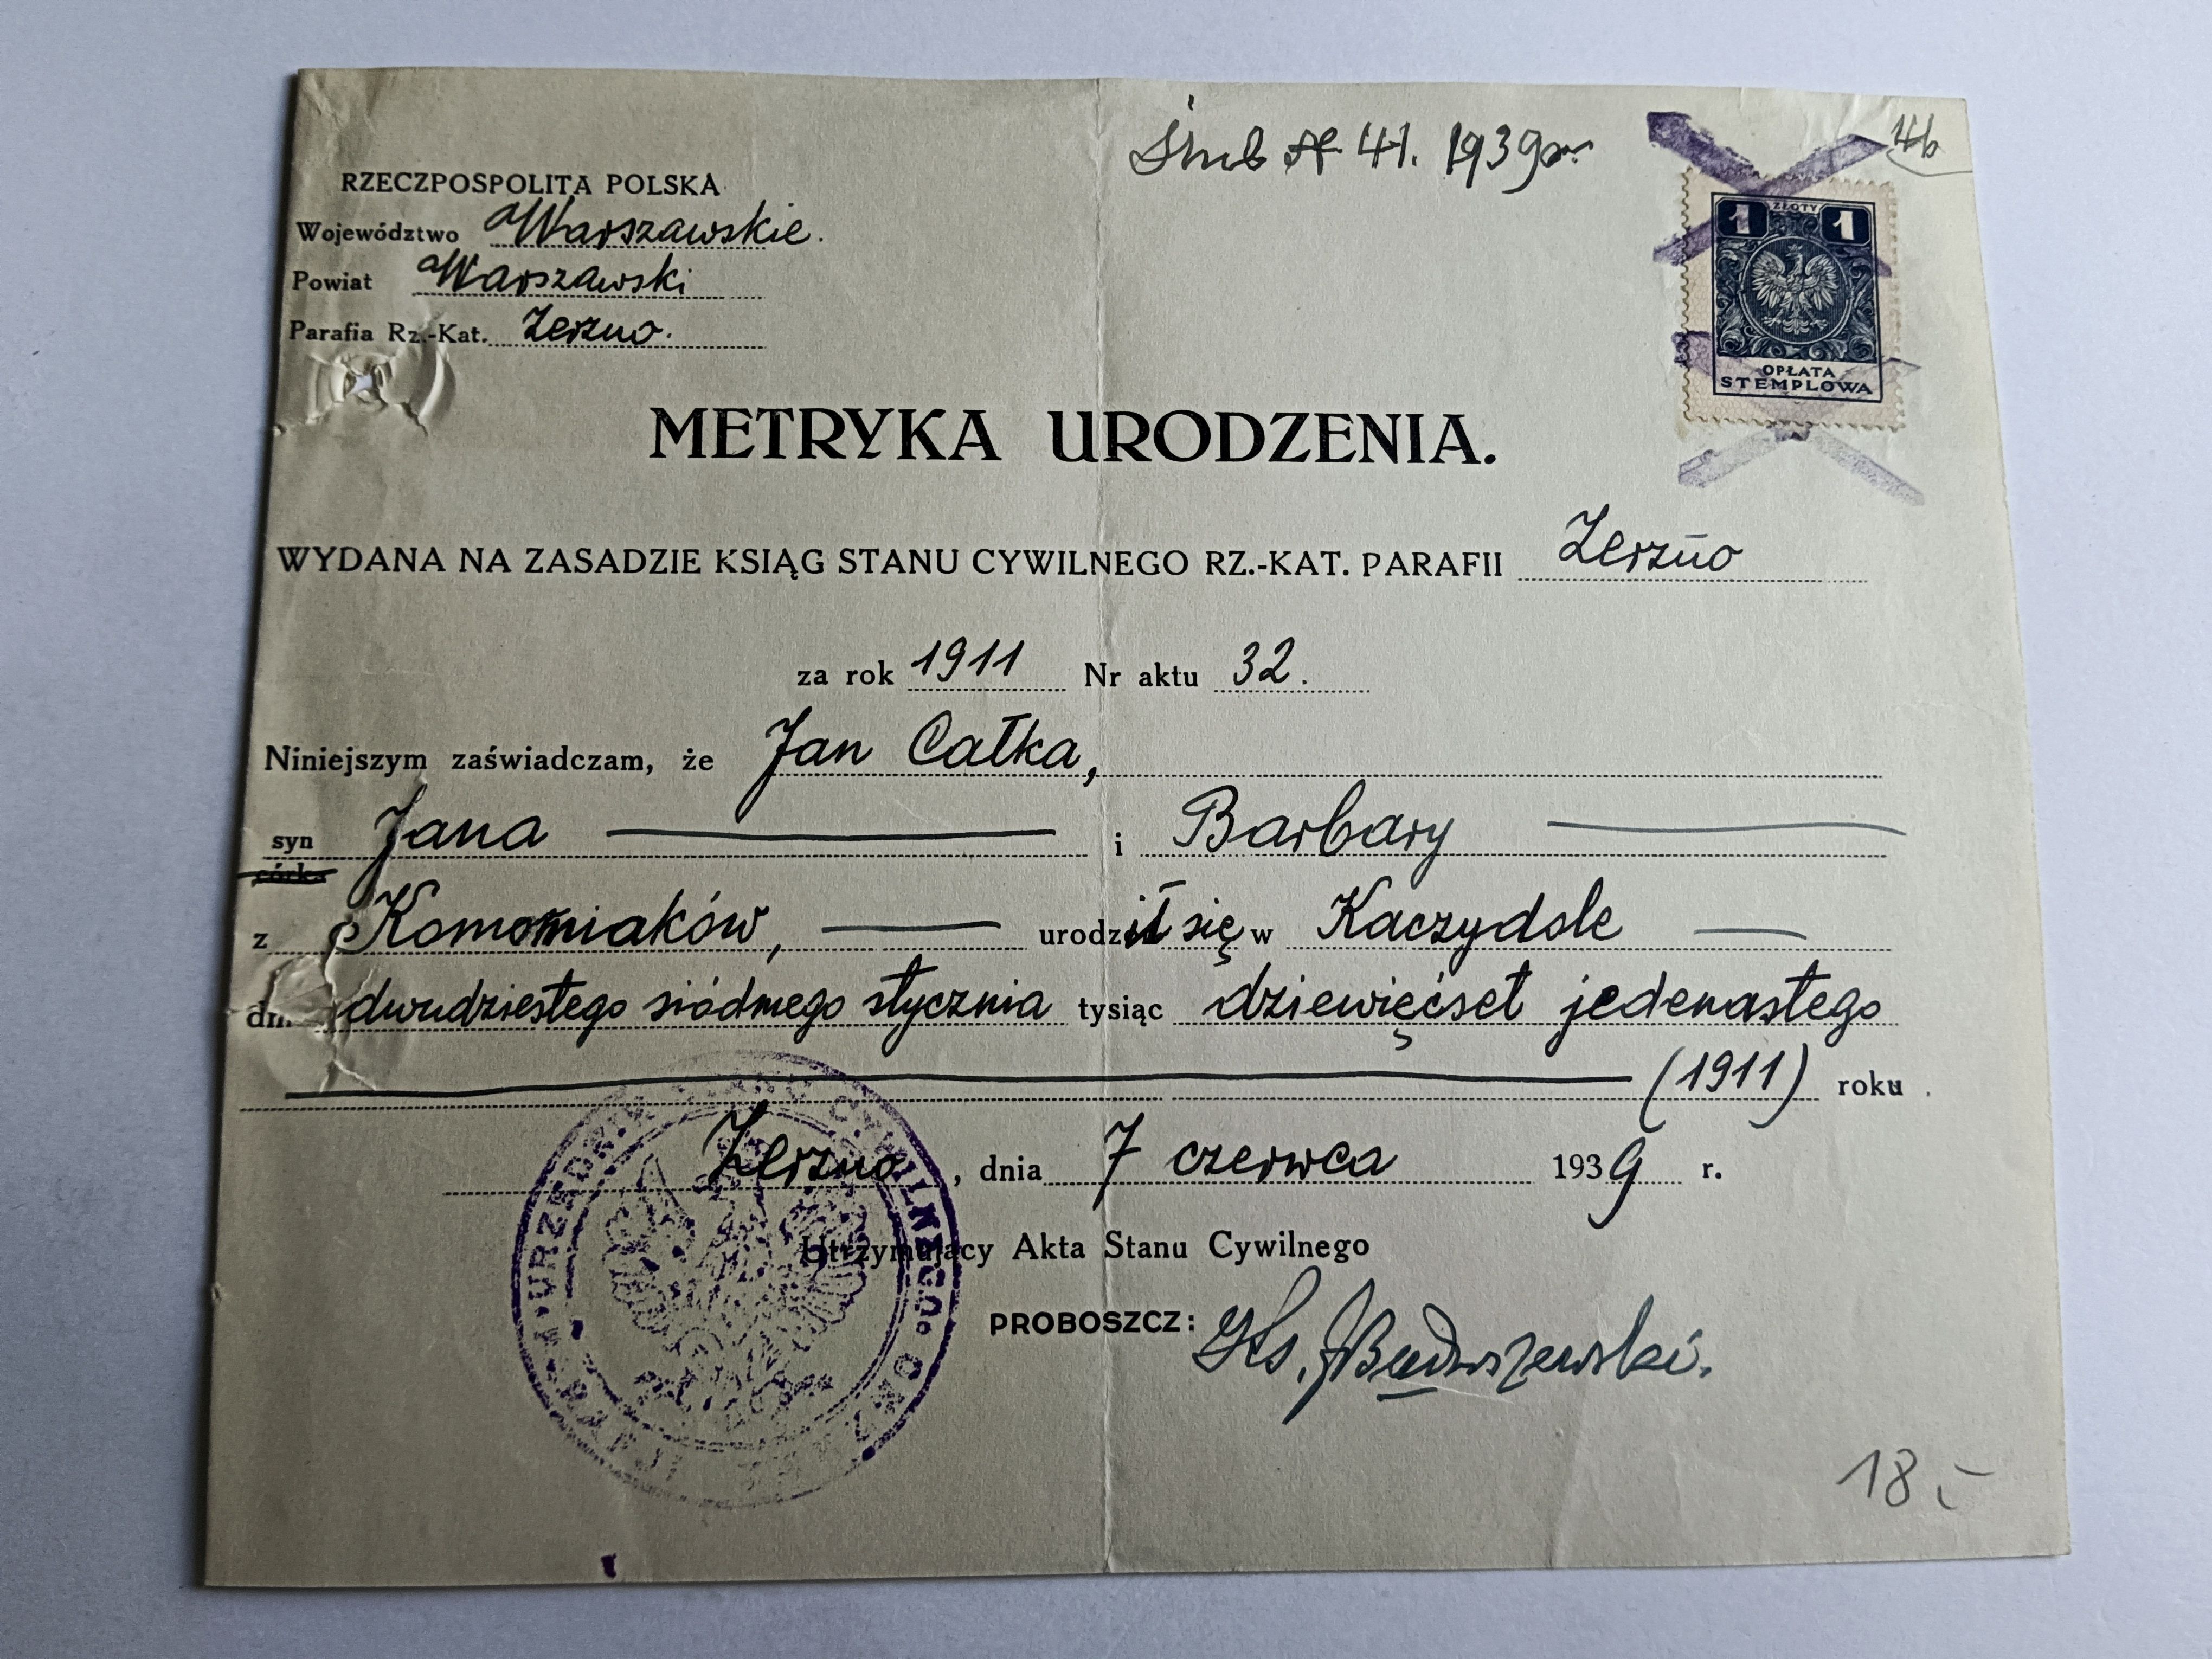 Ślub № 41. 1939 r.
RZECZPOSPOLITA POLSKA
Województwo Warszawskie.
Powiat Warszawski
Parafia Rz.-Kat. Zerzno.
1 ZŁOTY 1
OPŁATA
STEMPLOWA
METRYKA URODZENIA.
WYDANA NA ZASADZIE KSIĄG STANU CYWILNEGO RZ.-KAT. PARAFII Zerzno
za rok 1911 Nr aktu 32.
Niniejszym zaświadczam, że Jan Całka,
syn Jana i Barbary
córka
z Komorniaków, urodził się w Kaczydole
dn dwudziestego siódmego stycznia tysiąc dziewięćset jedenastego
(1911) roku.
Zerzno, dnia 7 czerwca 1939 r.
Utrzymujący Akta Stanu Cywilnego
PROBOSZCZ: Ks.
URZĘDNIK STANU CYWILNEGO.
18.-